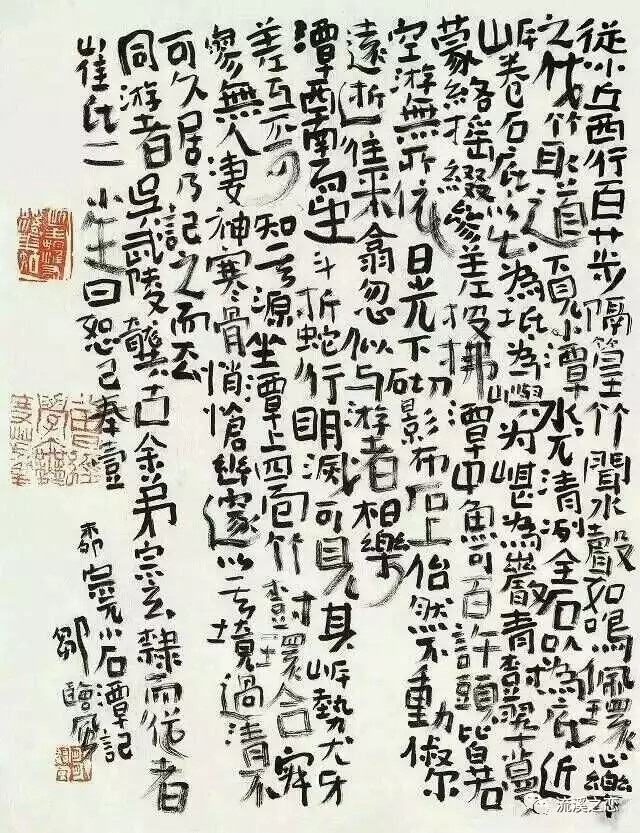 從小丘西行百廿步隔篁竹聞水聲如鳴佩環心樂
之伐竹取道下見小潭水尤清冽全石以為底近
岸卷石底以出為坻為嶼为嵁為巖青樹翠蔓
蒙絡搖綴參差披拂潭中魚可百許頭皆若
空游無所依日光下砌影布石上佁然不動俶尔
遠逝往來翕忽似与游者相樂
潭西南而望斗折蛇行明滅可見其岸勢犬牙
差互不可知其源坐潭上四面竹樹環合寂
寥無人凄神寒骨悄愴幽邃以其境過清不
可久居乃記之而去
同游者吳武陵龔古余弟宗玄隸而從者
崔氏二小生曰恕己奉壹
柳宗元小石潭記
鄒
流溪之恋